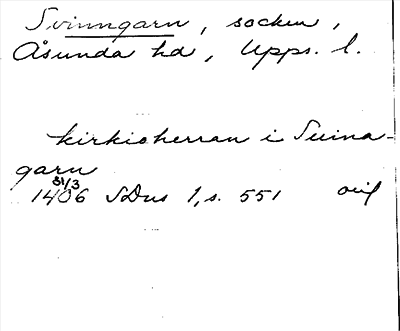 Svinngarn, socken,
Åsunda hd, Upps. l.
kirkioherran i Suina-
garn
31/3
1406 SDns 1, s. 551 avil